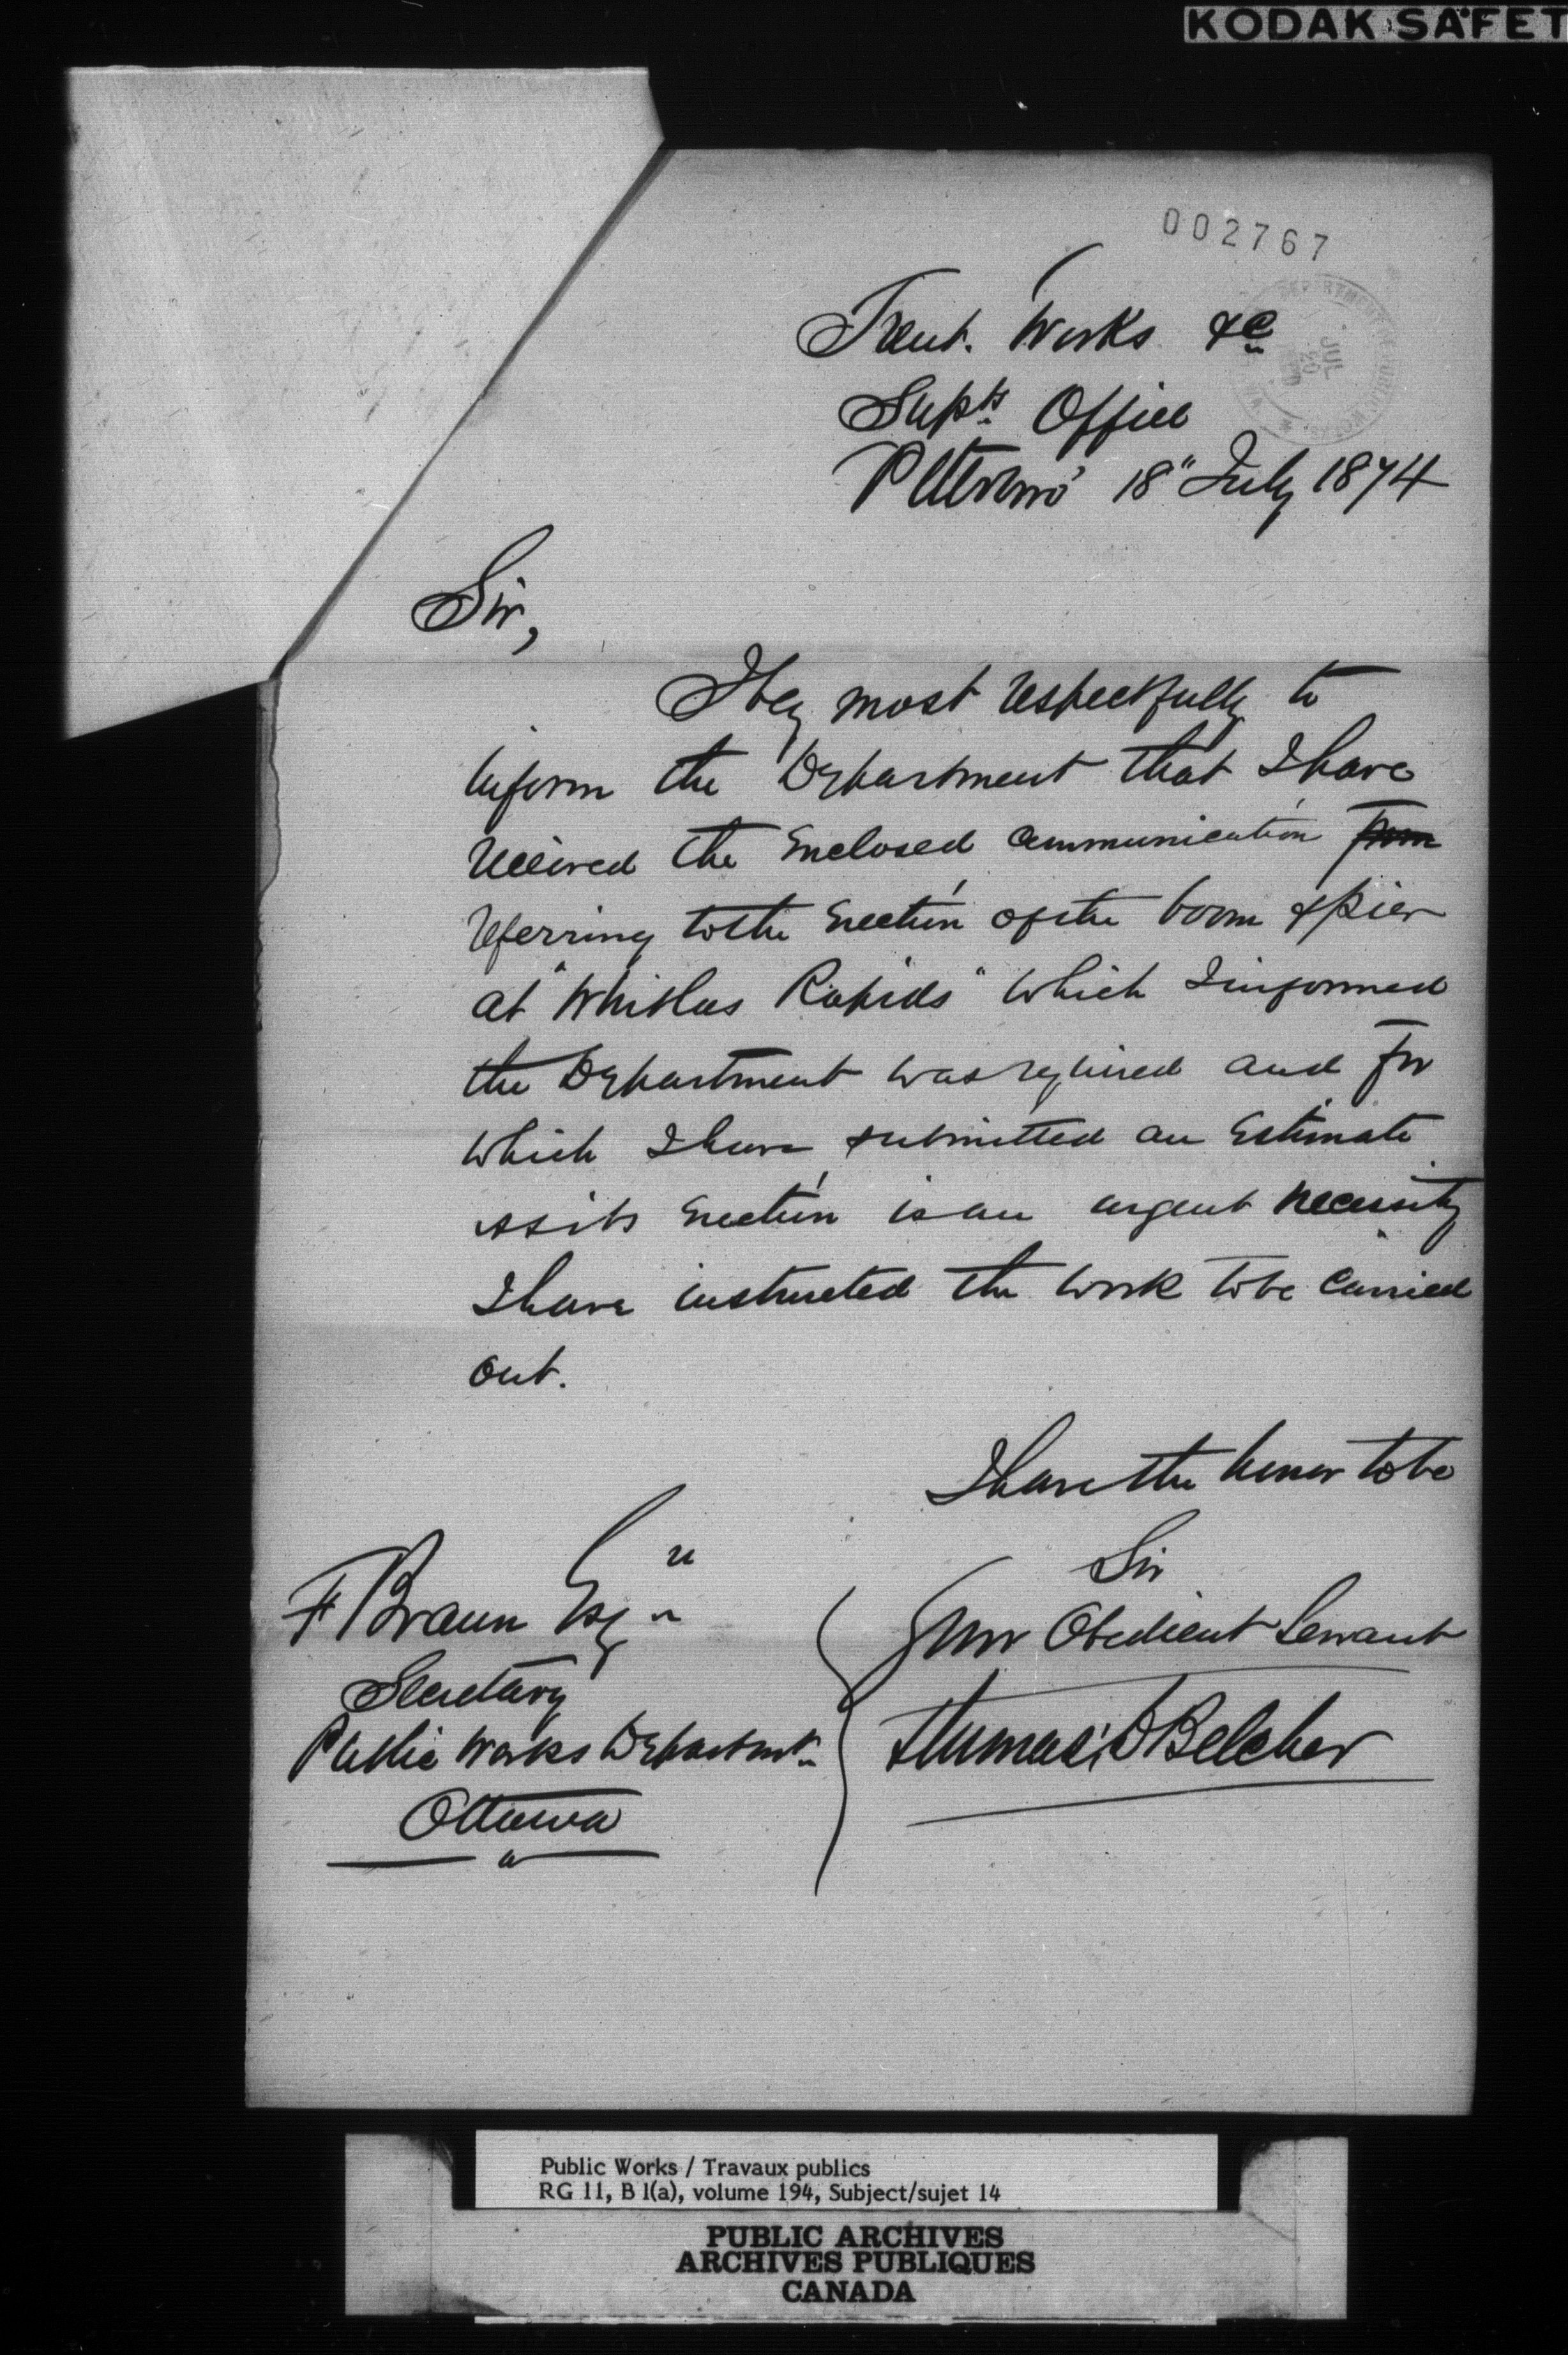 KODAK SAFET
002767
Trent. Works &c
Supts Office
Peterboro' 18" July 1874
Sir,
I beg most respectfully to
inform the Department that I have
received the Enclosed Communication from
referring to the Erection of the boom & pier
at "Whitlas Rapids" which I informed
the Department was required and for
which I have submitted an Estimate
as its Erection is an urgent necessity
I have instructed the work to be carried
out.
I have the honor to be
Sir
Your Obedient Servant
Thomas D Belcher
F Braun Esqre
Secretary
Public Works Departmt
Ottawa
Public Works / Travaux publics
RG 11, B 1(a), volume 194, Subject/sujet 14
PUBLIC ARCHIVES
ARCHIVES PUBLIQUES
CANADA